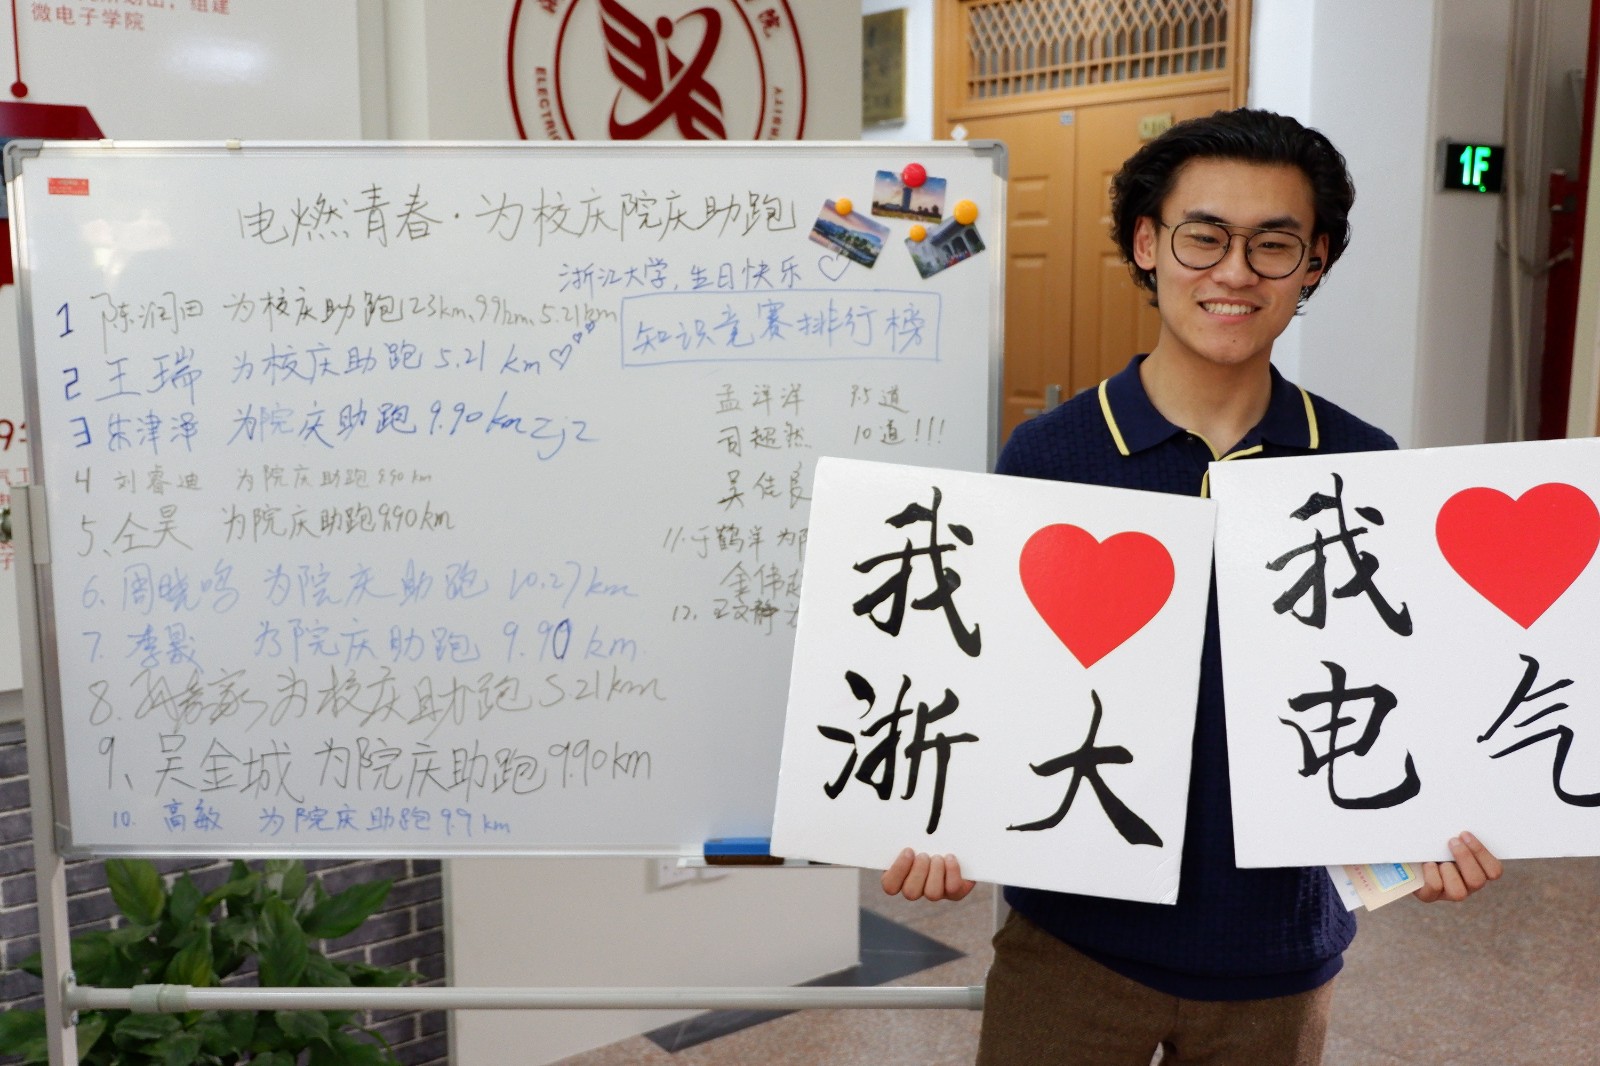 组建
微电子学院
ELECTRIC
RSITY
1F
电燃青春·为校庆院庆助跑
浙江大学,生日快乐♡
1 陈润田 为校庆助跑123km、99km、5.21km
知识竞赛排行榜
2 王瑞 为校庆助跑 5.21 km♡
3 朱津泽 为院庆助跑 9.90km zjz
孟洋洋 9.5道
司超然 10道!!!
4 刘睿迪 为院庆助跑 9.90 km
吴佳良
5、仝昊 为院庆助跑9.90km
11.于鹤洋 为
6. 周晓鸣 为院庆助跑 10.27km
金伟
12. 王文静
7. 李晟 为院庆助跑 9.90 km.
8. 为校庆助跑 5.21km
9、吴金城 为院庆助跑 9.90km
10. 高敏 为院庆助跑 9.9 km
我❤
浙大
我❤
电气